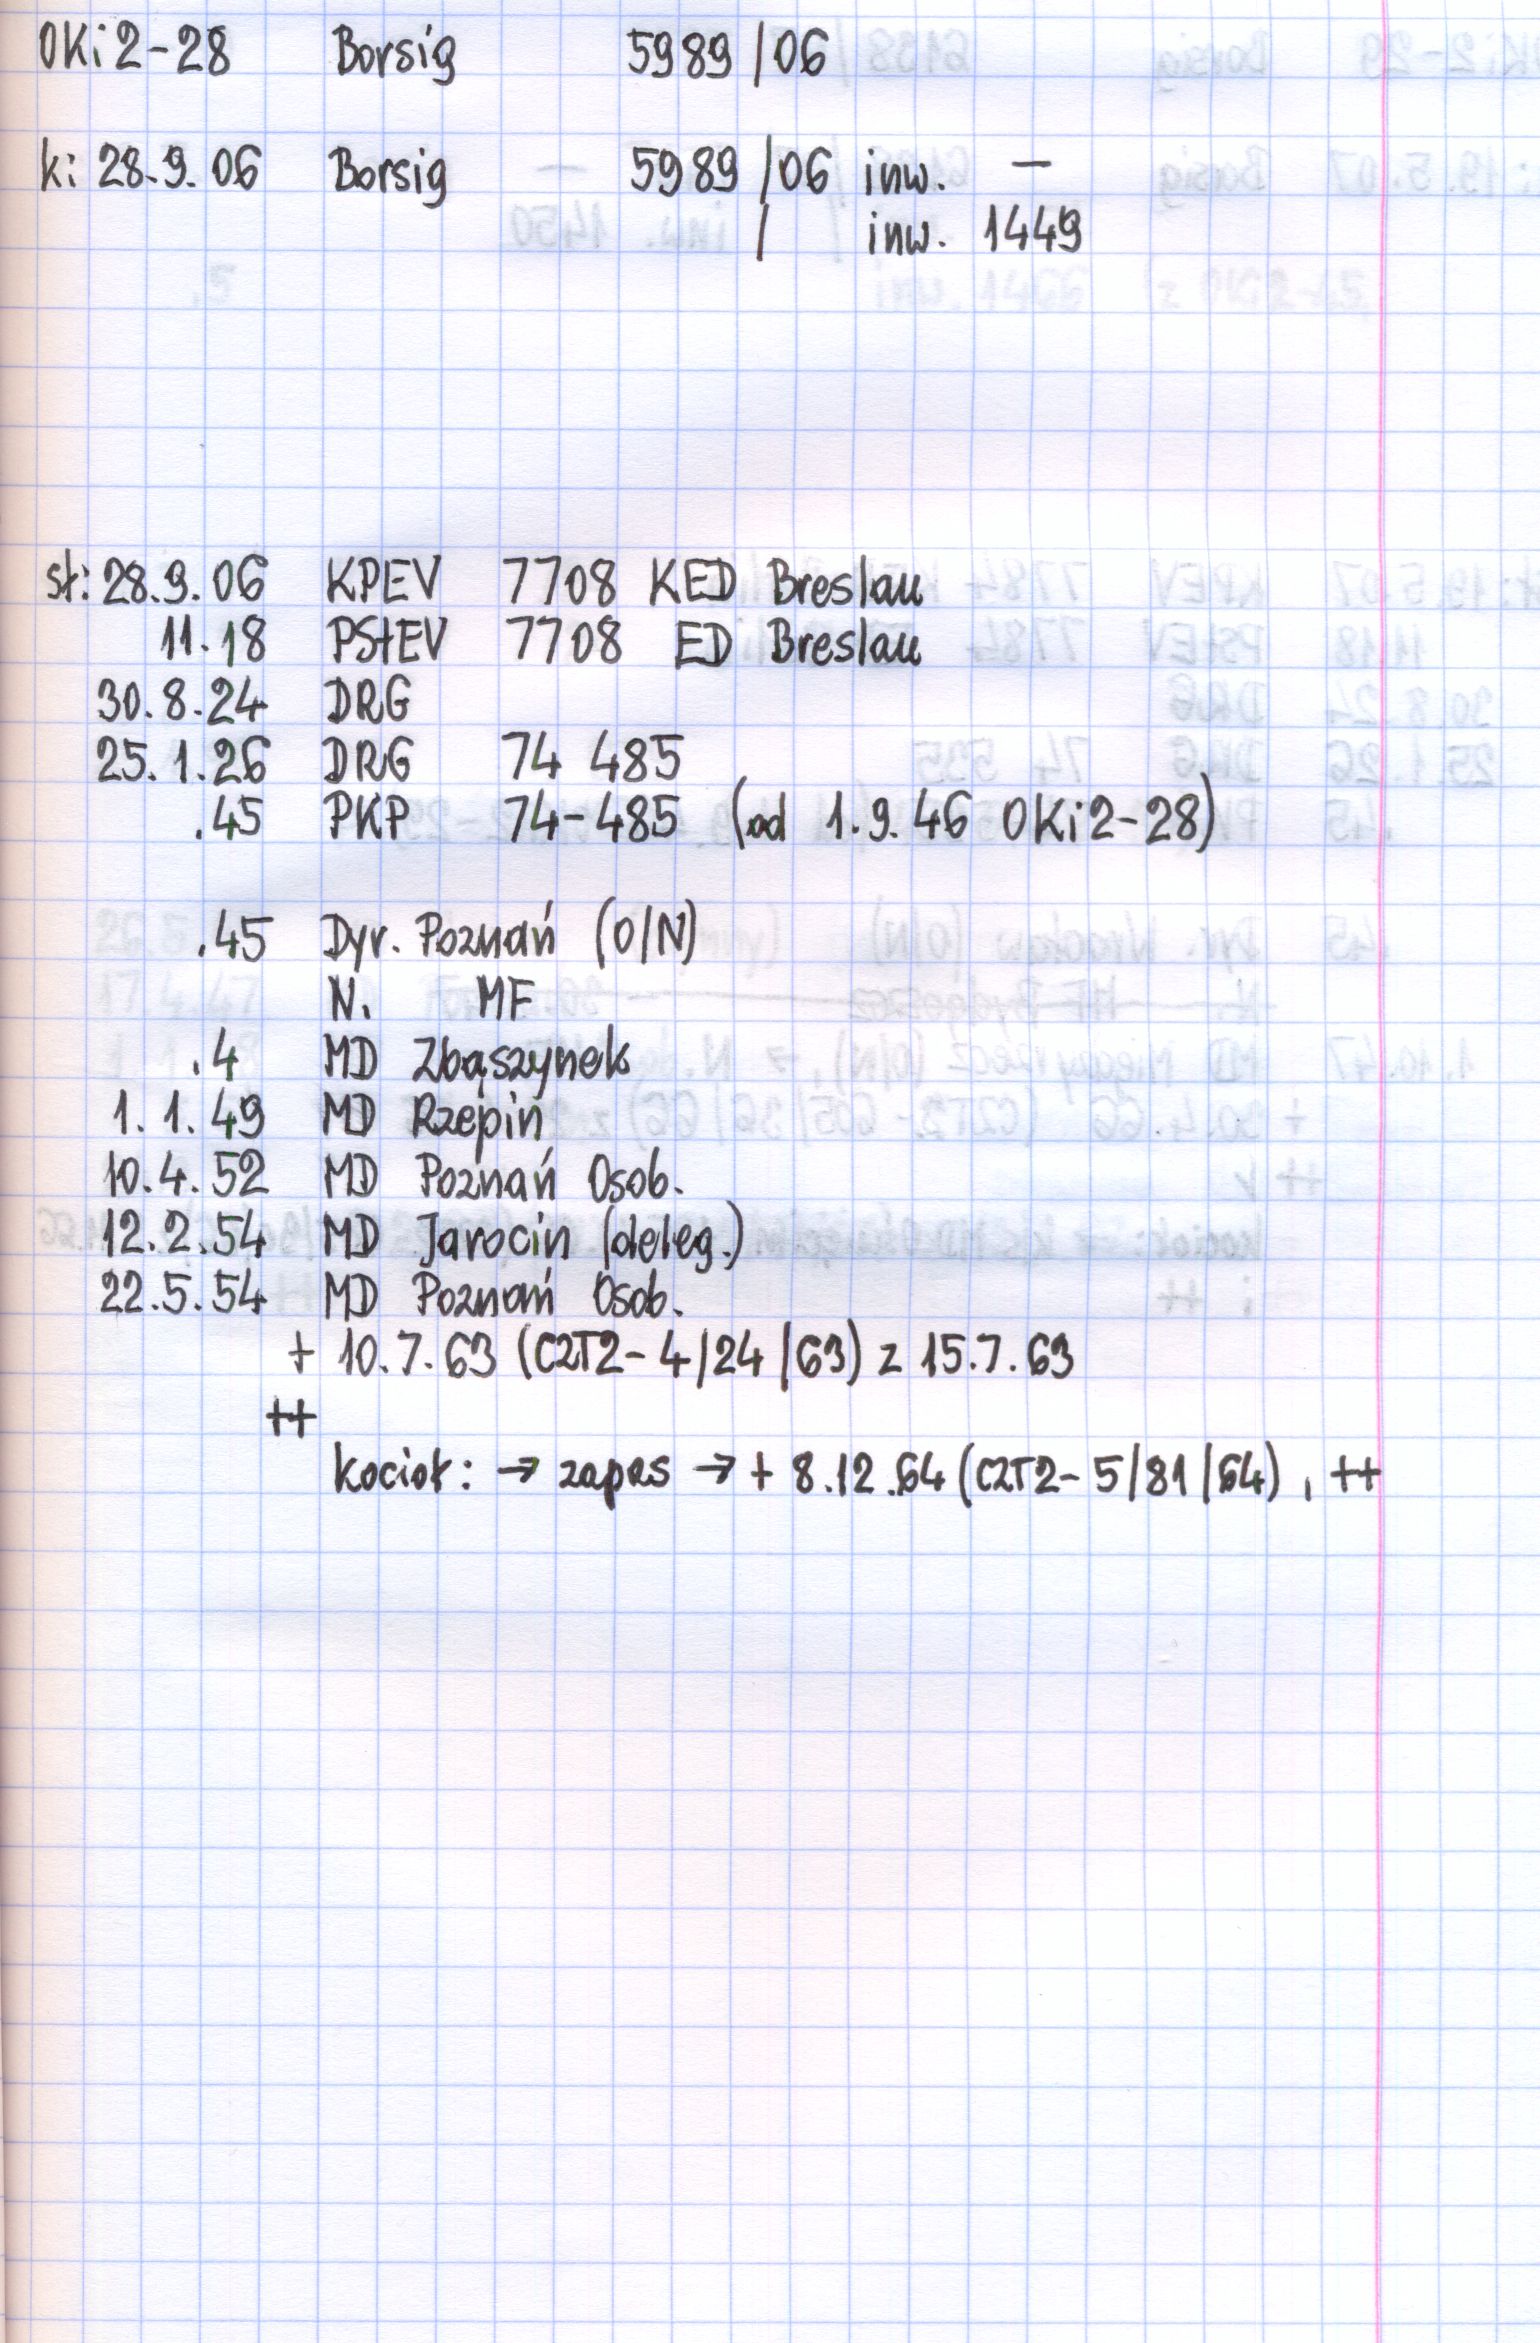 OKi2-28 Borsig 5989/06
k: 28.9.06 Borsig 5989/06 inw. —
/ inw. 1449
st: 28.9.06 KPEV 7708 KED Breslau
11.18 PStEV 7708 ED Breslau
30.8.24 DRG
25.1.26 DRG 74 485
.45 PKP 74-485 (od 1.9.46 OKi2-28)
.45 Dyr. Poznań (O/N)
N. MF
.4 MD Zbąszynek
1.1.49 MD Rzepin
10.4.52 MD Poznań Osob.
12.2.54 MD Jarocin (deleg.)
22.5.54 MD Poznań Osob.
+ 10.7.63 (C2T2-4/24/63) z 15.7.63
++
kocioł: → zapas → + 8.12.64 (C2T2-5/81/64), ++